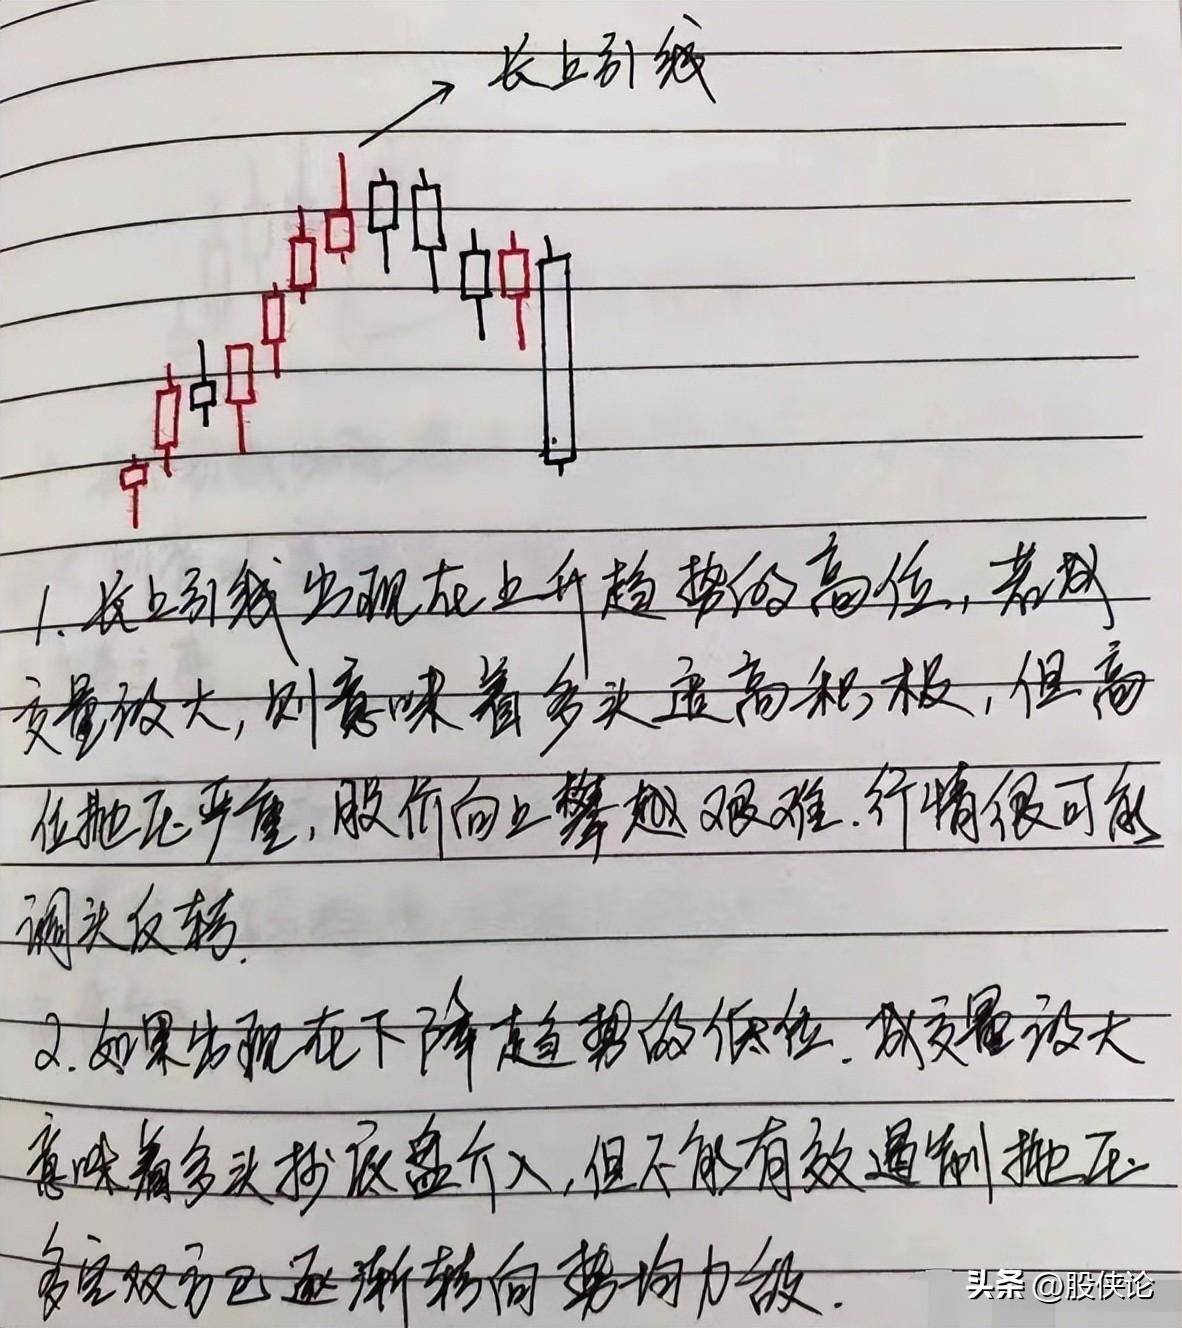 长上引线
1. 长上引线出现在上升趋势的高位，若成
交量放大，则意味着多头追高积极，但高
位抛压严重，股价向上攀越艰难．行情很可能
调头反转．
2. 如果出现在下降趋势的低位．成交量放大
意味着多头抄底盘介入，但不能有效遏制抛压
多空双方已逐渐转向势均力敌．
头条 @股侠论